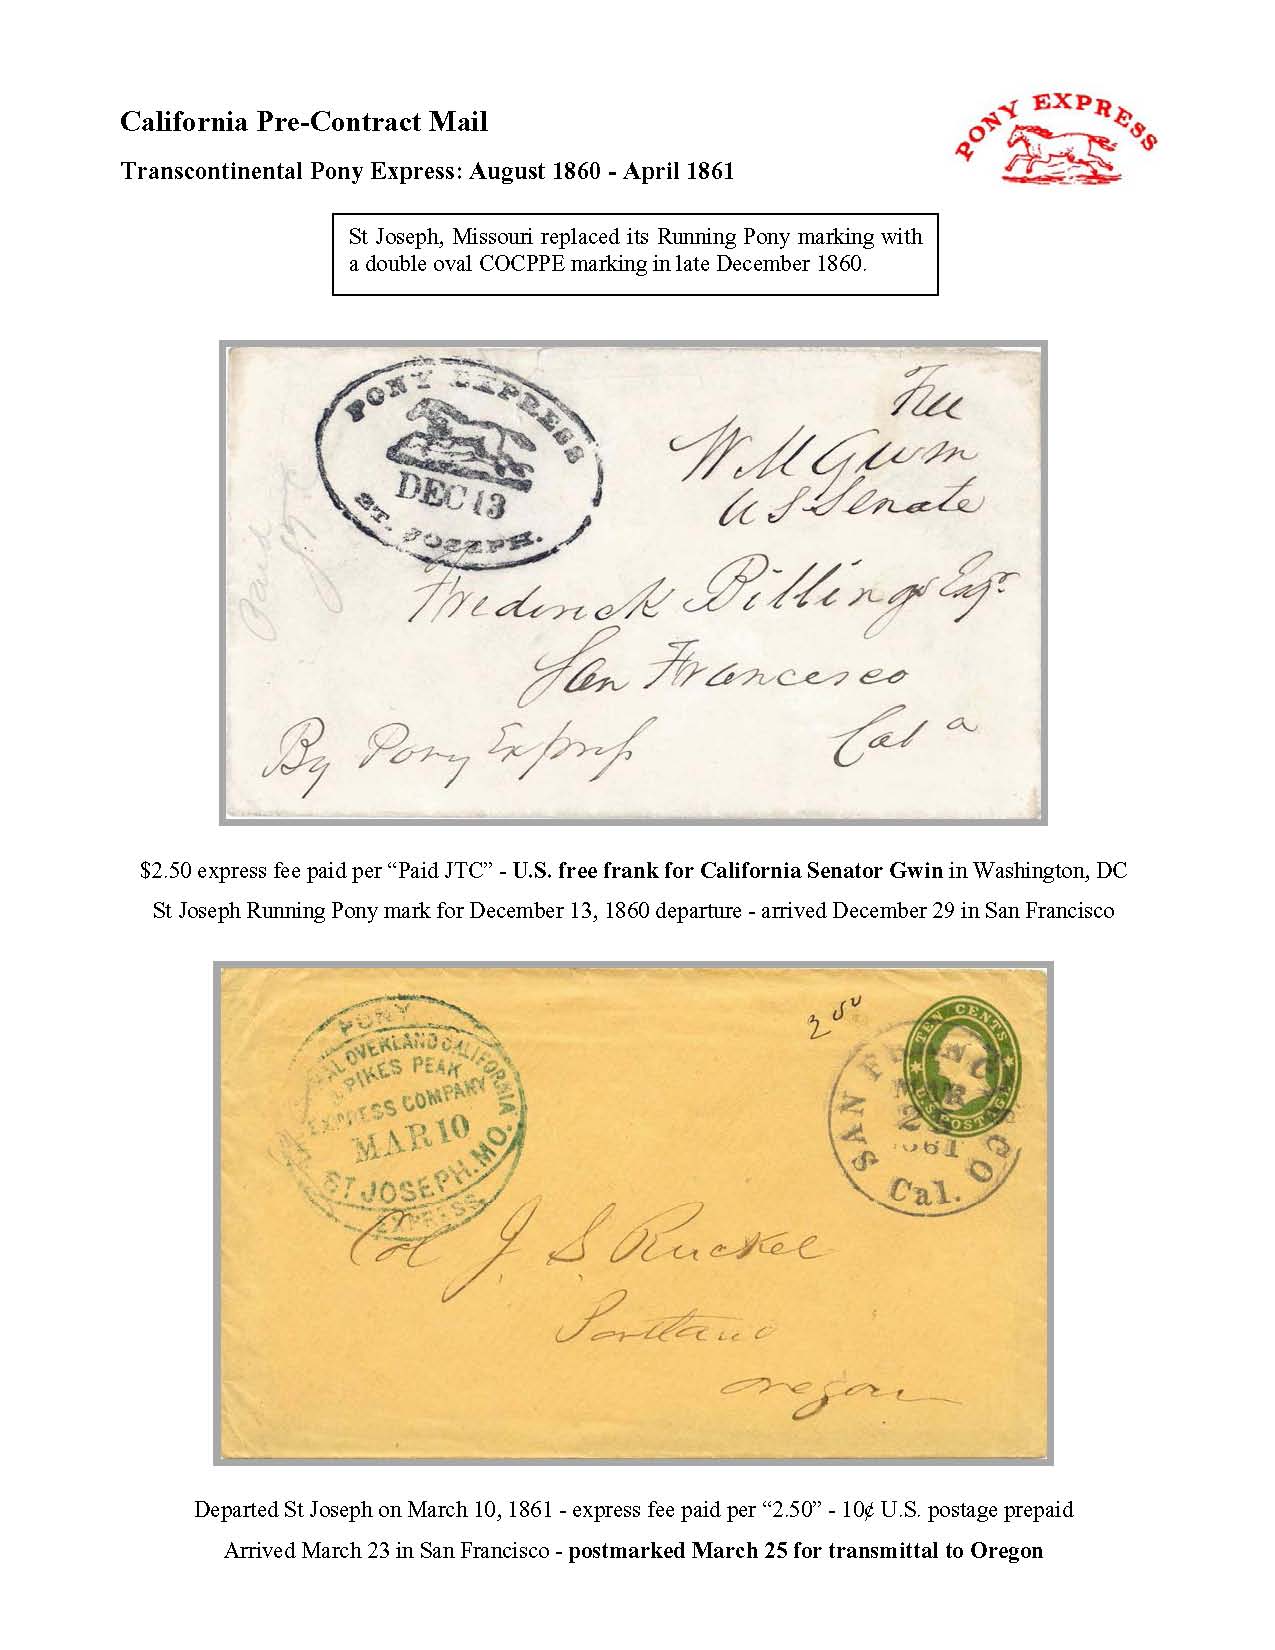 California Pre-Contract Mail
PONY EXPRESS
Transcontinental Pony Express: August 1860 - April 1861
St Joseph, Missouri replaced its Running Pony marking with
a double oval COCPPE marking in late December 1860.
PONY EXPRESS
DEC 13
ST. JOSEPH.
Paid
Free
W M Gwin
U S Senate
Frederick Billings Esqr.
San Francisco
Cal a
By Pony Express
$2.50 express fee paid per “Paid JTC” - U.S. free frank for California Senator Gwin in Washington, DC
St Joseph Running Pony mark for December 13, 1860 departure - arrived December 29 in San Francisco
PONY
OVERLAND CALIFORNIA
PIKES PEAK
EXPRESS COMPANY
MAR 10
ST JOSEPH. MO.
EXPRESS
2 50
TEN CENTS
U.S. POSTAGE
SAN FRANCISCO
MAR
1861
Cal.
Col J. S. Ruckel
Portland
Oregon
Departed St Joseph on March 10, 1861 - express fee paid per “2.50” - 10¢ U.S. postage prepaid
Arrived March 23 in San Francisco - postmarked March 25 for transmittal to Oregon